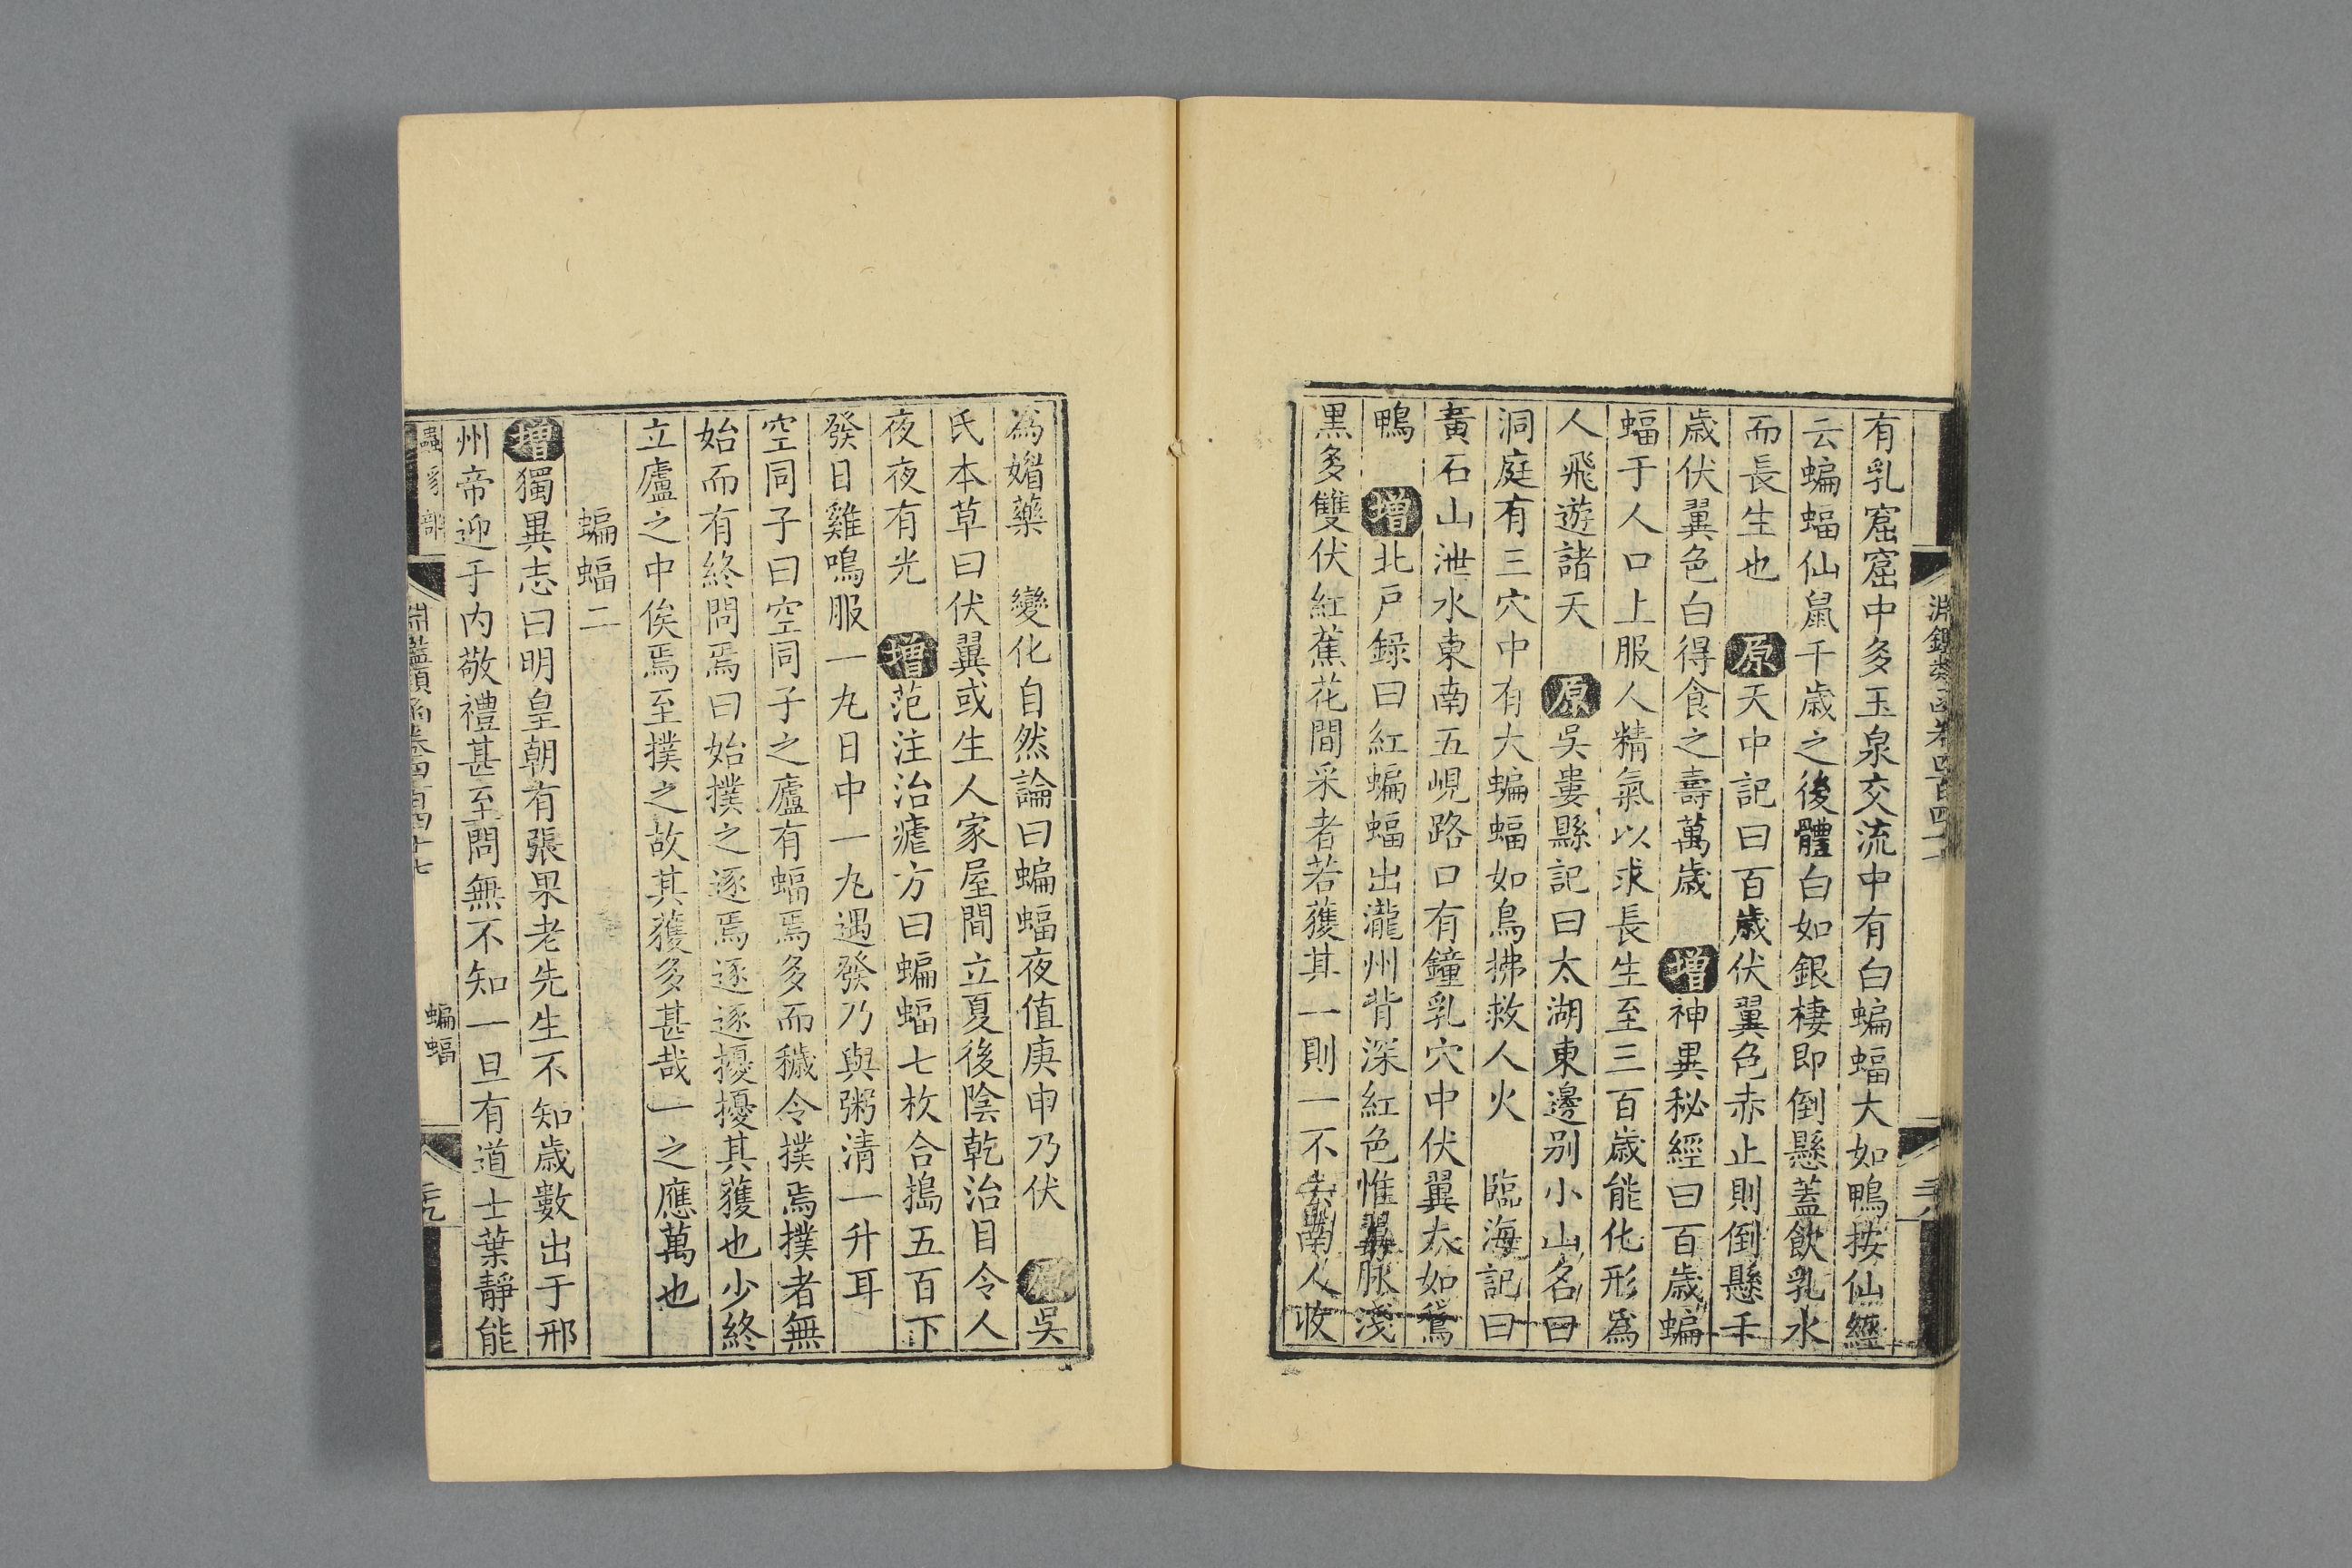 有乳窟窟中多玉泉交流中有白蝙蝠大如鴨按仙經
云蝙蝠仙鼠千歳之後體白如銀棲即倒懸蓋飲乳水
而長生也 原天中記曰百歳伏翼色赤止則倒懸千
歳伏翼色白得食之壽萬歳 增神異秘經曰百歳蝙
蝠于人口上服人精氣以求長生至三百歳能化形為
人飛遊諸天 原吳婁縣記曰太湖東邊别小山名曰
洞庭有三穴中有大蝙蝠如鳥拂救人火 臨海記曰
黃石山泄水東南五峴路口有鐘乳穴中伏翼大如鵞
鴨 增北戸錄曰紅蝙蝠出瀧州背深紅色惟翼脉淺
黒多雙伏紅蕉花間采者若獲其一則一不去南人收
為媚藥 變化自然論曰蝙蝠夜值庚申乃伏 原吳
氏本草曰伏翼或生人家屋間立夏後陰乾治目令人
夜夜有光 增范注治瘧方曰蝙蝠七枚合搗五百下
發日雞鳴服一丸日中一丸遇發乃與粥清一升耳
空同子曰空同子之廬有蝠焉多而穢令撲焉撲者無
始而有終問焉曰始撲之逐焉逐逐擾擾其獲也少終
立廬之中俟焉至撲之故其獲多甚哉一之應萬也
蝙蝠二
增獨異志曰明皇朝有張果老先生不知歳數出于邢
州帝迎于内敬禮甚至問無不知一旦有道士葉靜能
蟲豸部 淵鑑類函卷四百四十七 蝙蝠 二九